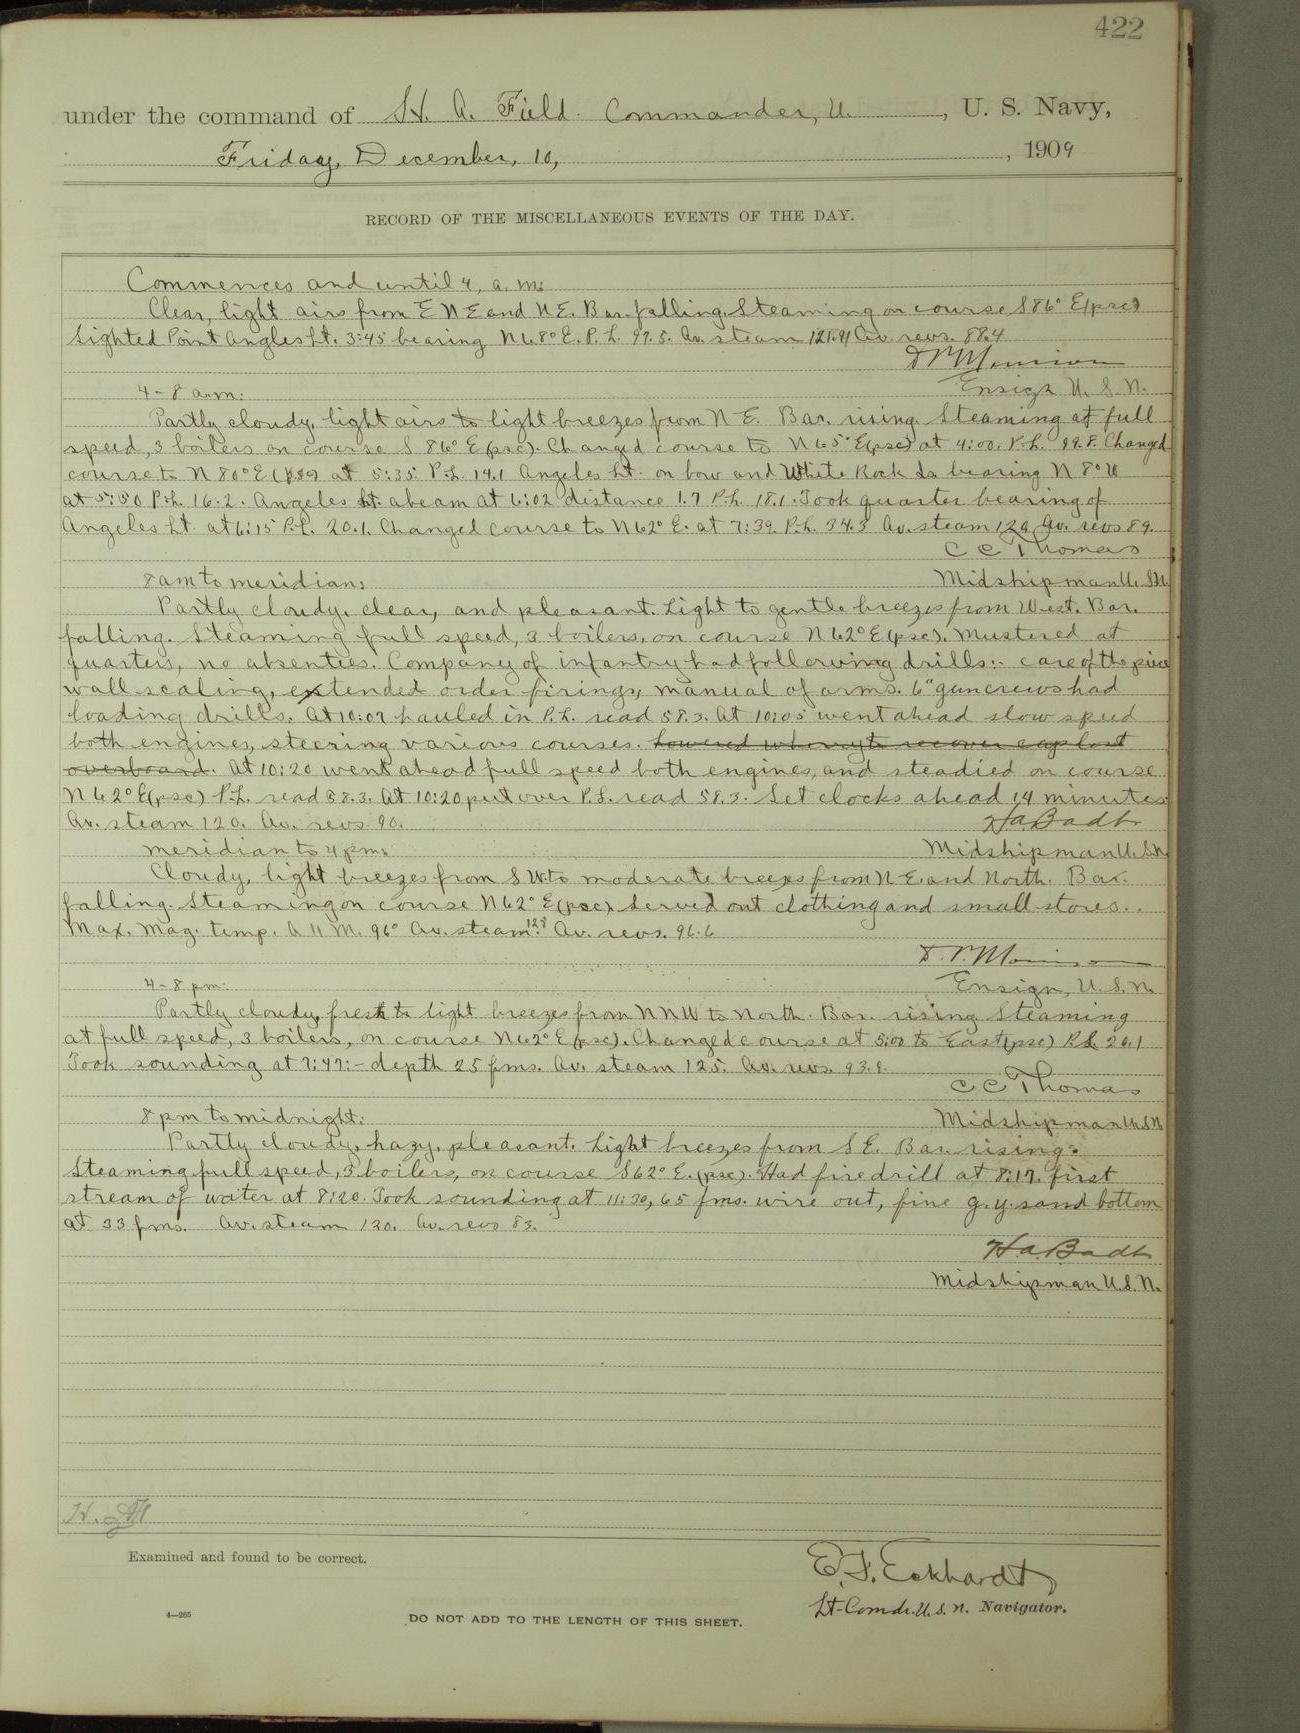 422
under the command of H. A. Field. Commander, U. , U. S. Navy,
Friday, December, 10, , 1909
RECORD OF THE MISCELLANEOUS EVENTS OF THE DAY.
Commences and until 4, a. m:
Clear, light airs from E N E and N E. Bar. falling. Steaming on course S 86° E (psc)
Sighted Point Angles Lt. 3:45 bearing N 68° E. P. L. 97.5. Av. steam 121.4 Av. revs. 88.4
Ensign U. S. N.
4 - 8 a.m:
Partly cloudy, light airs to light breezes from N E. Bar. rising. Steaming at full
speed, 3 boilers on course S 86° E (psc). Changed course to N 65° E (psc) at 4:00. P.L. 99.8. Changed
course to N 80° E (psc) at 5:35 P.L. 14.1 Angeles Lt. on bow and White Rock Is bearing N 8° W
at 5:50 P.L. 16.2. Angeles Lt. abeam at 6:02 distance 1.7 P.L. 18.1. Took quarter bearing of
Angeles Lt at 6:15 P.L. 20.1. Changed course to N 62° E. at 7:39. P.L. 34.3 Av. steam 120 Av. revs 89.
C C Thomas
8 am to meridian: Midshipman U. S.N.
Partly cloudy, clear, and pleasant. Light to gentle breezes from West. Bar.
falling. Steaming full speed, 3 boilers, on course N 62° E (psc). Mustered at
quarters, no absentees. Company of infantry had following drills:- care of the piece
wall scaling, extended order firings, manual of arms. 6" gun crews had
loading drills. At 10:07 hauled in P.L. read 58.3. At 10:05 went ahead slow speed
both engines, steering various courses. Lowered wherry to recover cap lost
overboard. At 10:20 went ahead full speed both engines, and steadied on course
N 62° E (psc) P.L. read 58.3. At 10:20 put over P.L. read 58.3. Set clocks ahead 14 minutes
Av. steam 120. Av. revs. 90. H a Badt
meridian to 4 pm: Midshipman U. S.N
Cloudy, light breezes from S W. to moderate breezes from N E and North. Bar.
falling. Steaming on course N 62° E (psc). Served out clothing and small stores.
Max. Mag. temp. A 11 M. 96° Av. steam 128 Av. revs. 96.6
4 - 8 pm: Ensign, U. S. N.
Partly cloudy, fresh to light breezes from N N W to North. Bar. rising Steaming
at full speed, 3 boilers, on course N 62° E (psc). Changed course at 5:00 to East (psc) P.L. 26.1
Took sounding at 7:47:- depth 25 fms. Av. steam 125. Av. revs. 93.9.
C C Thomas
8 pm to midnight: Midshipman U. S.N
Partly cloudy, hazy, pleasant. Light breezes from S E. Bar. rising.
Steaming full speed, 3 boilers, on course S 62° E. (psc). Had fire drill at 8:17. first
stream of water at 8:20. Took sounding at 11:30, 65 fms. wire out, fine g. y. sand bottom
at 33 fms. Av. steam 120. Av. revs 83.
H a Badt
Midshipman U. S. N.
Examined and found to be correct.
E. F. Eckhardt
Lt-Comdr. U. S. N. Navigator.
4—265
DO NOT ADD TO THE LENGTH OF THIS SHEET.